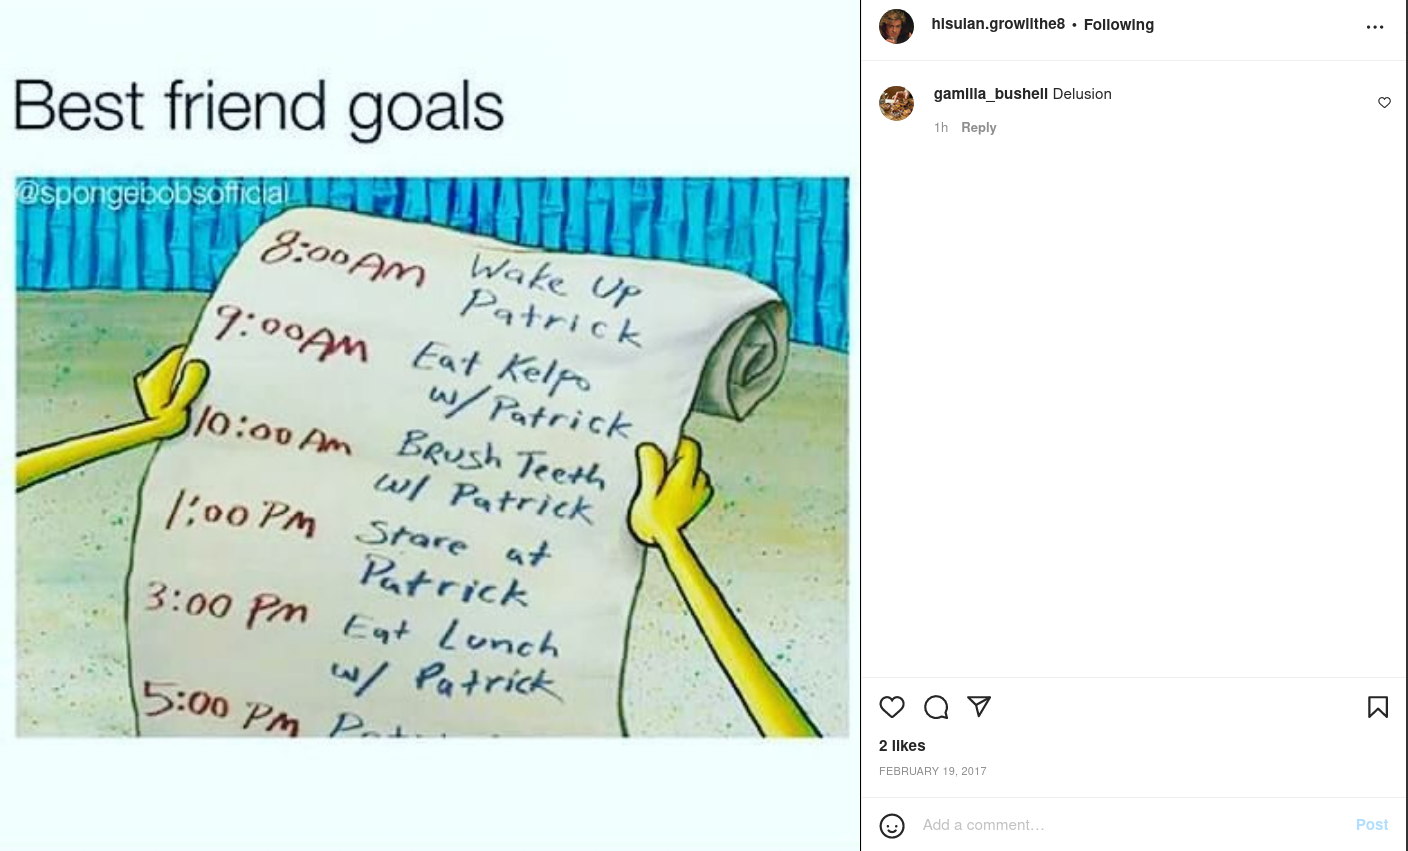 Best friend goals
@spongebobsofficial
8:00 AM Wake Up
Patrick
9:00 AM Eat Kelpo
w/ Patrick
10:00 Am Brush Teeth
w/ Patrick
1:00 PM Stare at
Patrick
3:00 PM Eat Lunch
w/ Patrick
5:00 PM
hisuian.growlithe8 • Following
gamilla_bushell Delusion
1h Reply
2 likes
FEBRUARY 19, 2017
Add a comment...
Post